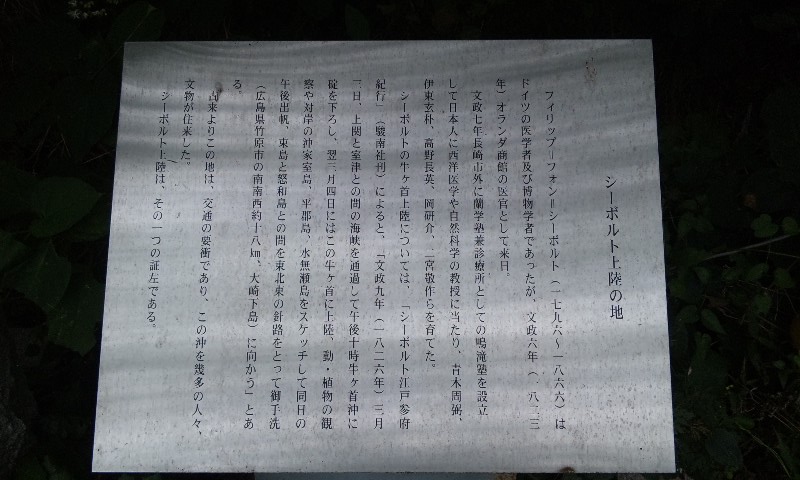 シーボルト上陸の地
フィリップ＝フォン＝シーボルト（一七九六～一八六六）は
ドイツの医学者及び博物学者であったが、文政六年（一八二三
年）オランダ商館の医官として来日。
文政七年長崎市外に蘭学塾兼診療所としての鳴滝塾を設立
して日本人に西洋医学や自然科学の教授に当たり、青木周弼、
伊東玄朴、高野長英、岡研介、二宮敬作らを育てた。
シーボルトの牛ヶ首上陸については、「シーボルト江戸参府
紀行」（駿南社刊）によると、「文政九年（一八二六年）三月
三日、上関と室津との間の海峡を通過して午後十時牛ヶ首沖に
碇を下ろし、翌三月四日にはこの牛ヶ首に上陸、動・植物の観
察や対岸の沖家室島、平郡島、水無瀬島をスケッチして同日の
午後出帆、東島と怒和島との間を東北東の針路をとって御手洗
（広島県竹原市の南南西約十八㎞、大崎下島）に向かう」とあ
る。
古来よりこの地は、交通の要衝であり、この沖を幾多の人々、
文物が往来した。
シーボルト上陸は、その一つの証左である。